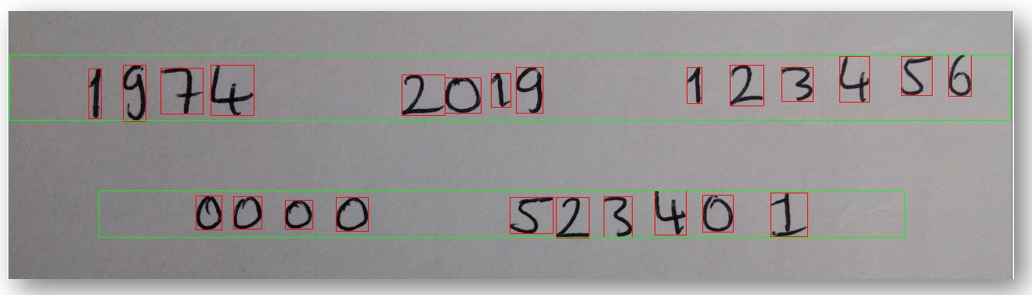 1974 2019 1 2 3 4 5 6
0000 523401